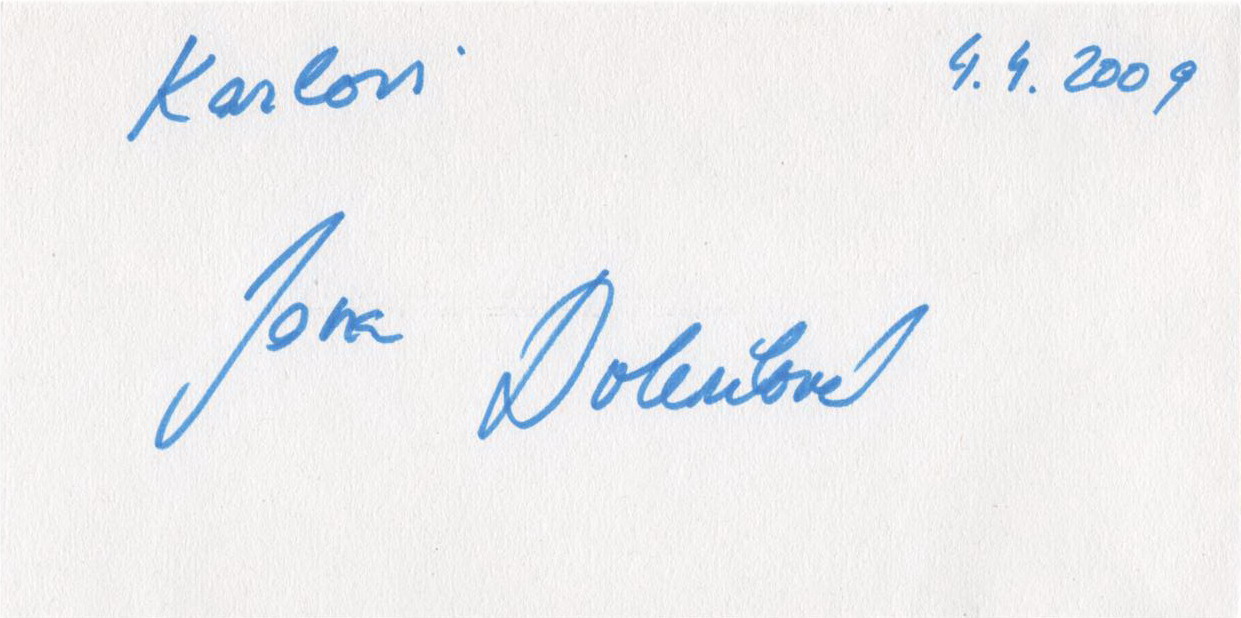 Karlovi 4.4.2009
Jana